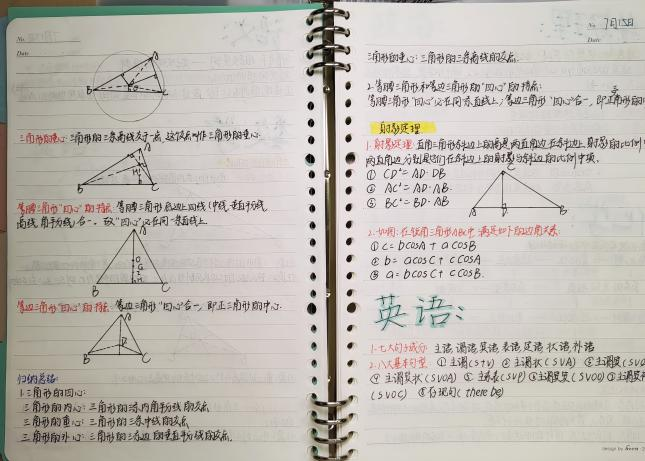 No.
Date
A
B
C
三角形的垂心: 三角形的三条高线交于一点, 这个点叫作三角形的垂心.
A
H
B
C
等腰三角形"四心"的特点: 等腰三角形底边上四线(中线, 垂直平分线,
高线, 角平分线)合一. 故"四心"必在同一条直线上.
A
O
G
B
C
等边三角形"四心"的特点: 等边三角形"四心"合一, 即正三角形的中心.
A
B
C
归纳总结:
1.三角形的四心:
三角形的内心: 三角形的三条内角平分线的交点
三角形的重心: 三角形的三条中线的交点
三角形的外心: 三角形的三条边的垂直平分线的交点.
No. 7月15日
Date
三角形的垂心: 三角形的三条高线的交点.
2.等腰三角形和等边三角形的"四心"的特点:
等腰三角形"四心"必在同一条直线上; 等边三角形"四心"合一, 即正三角形的
射影定理
1.射影定理: 直角三角形斜边上的高是两直角边在斜边上射影的比例
两直角边分别是它们在斜边上的射影与斜边的比例中项.
① CD²=AD·DB
② AC²=AD·AB.
③ BC²=BD·AB
A
D
B
2.如图: 在锐角三角形ABC中, 满足如下的边角关系:
① c=bcosA+acosB
② b=acosC+ccosA
③ a=bcosC+ccosB.
英语:
1.七大句子成分: 主语, 谓语, 宾语, 表语, 定语, 状语, 补语
2.八大基本句型: ①主谓(SV) ②主谓状(SVA) ③主谓宾(SV
④主谓宾状(SVOA) ⑤主系表(SVP) ⑥主谓宾宾(SVOO) ⑦主谓宾
(SVOC) ⑧存现句(there be)